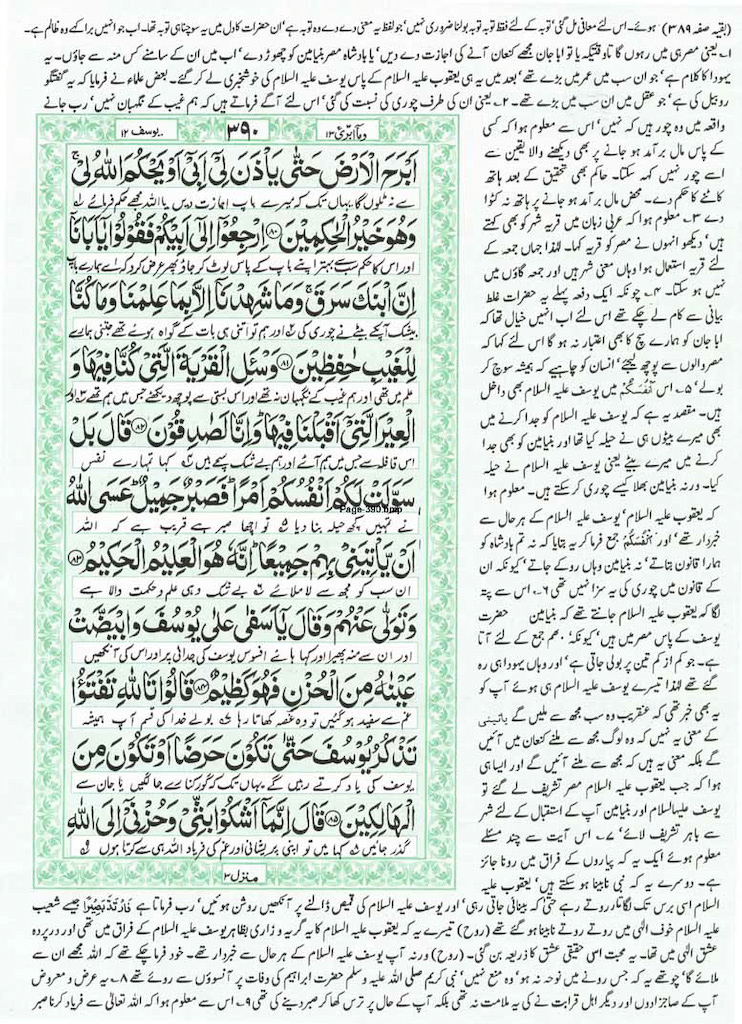 (بقیہ صفہ ۳۸۹) ہوئے۔ اس لئے معافی مل گئی، توبہ کے لئے فقط توبہ توبہ بولنا ضروری نہیں، جو لفظ یہ معنی دے دے وہ توبہ ہے، ان حضرات کا دل میں یہ سوچنا ہی توبہ تھا۔ اب جو انہیں برا کہے وہ ظالم ہے۔
۱۔ یعنی مصر ہی میں رہوں گا تاوقتیکہ یا تو ابا جان مجھے کنعان آنے کی اجازت دے دیں، یا بادشاہ مصر بنیامین کو چھوڑ دے، اب میں ان کے سامنے کس منہ سے جاؤں۔ یہ
یہودا کا کلام ہے، جو ان سب میں عمر میں بڑے تھے، بعد میں یہ ہی یعقوب علیہ السلام کے پاس یوسف علیہ السلام کی خوشخبری لے کر گئے۔ بعض علماء نے فرمایا کہ یہ گفتگو
روبیل کی ہے، جو عقل میں ان سب میں بڑے تھے۔ ۲۔ یعنی ان کی طرف چوری کی نسبت کی گئی، اس لئے آگے فرماتے ہیں کہ ہم غیب کے نگہبان نہیں، رب جانے
واقعہ میں وہ چور ہیں کہ نہیں، اس سے معلوم ہوا کہ کسی
کے پاس مال برآمد ہو جانے پر بھی دیکھنے والا یقین سے
اسے چور نہیں کہہ سکتا۔ حاکم بھی تحقیق کے بعد ہاتھ
کاٹنے کا حکم دے۔ محض مال برآمد ہو جانے پر ہاتھ نہ کٹوا
دے ۳۔ معلوم ہوا کہ عربی زبان میں قریہ شہر کو بھی کہتے
ہیں، دیکھو انہوں نے مصر کو قریہ کہا۔ لہذا جہاں جمعہ کے
لئے قریہ استعمال ہوا وہاں معنی شہر ہیں اور جمعہ گاؤں میں
نہیں ہو سکتا۔ ۴۔ چونکہ ایک دفعہ پہلے یہ حضرات غلط
بیانی سے کام لے چکے تھے اس لئے اب انہیں خیال تھا کہ
ابا جان کو ہمارے سچ کا بھی اعتبار نہ ہو گا اس لئے کہا کہ
مصر والوں سے پوچھ لیجئے، انسان کو چاہیے کہ ہمیشہ سوچ کر
بولے ۵۔ اس اَنْفُسُكُمْ میں یوسف علیہ السلام بھی داخل
ہیں۔ مقصد یہ ہے کہ یوسف علیہ السلام کو جدا کرنے میں
بھی میرے بیٹوں ہی نے حیلہ کیا تھا اور بنیامین کو بھی جدا
کرنے میں میرے بیٹے یعنی یوسف علیہ السلام نے حیلہ
کیا۔ ورنہ بنیامین بھلا کیسے چوری کر سکتے ہیں۔ معلوم ہوا
کہ یعقوب علیہ السلام، یوسف علیہ السلام کے ہر حال سے
خبردار تھے، اور اَنْفُسُكُمْ جمع فرما کر یہ بتایا کہ نہ تم بادشاہ کو
ہمارا قانون بتاتے، نہ بنیامین وہاں روکے جاتے، کیونکہ ان
کے قانون میں چوری کی یہ سزا نہیں تھی ۶۔ اس سے پتہ
لگا کہ یعقوب علیہ السلام جانتے تھے کہ بنیامین حضرت
یوسف کے پاس مصر میں ہیں، کیونکہ ھم جمع کے لئے آتا
ہے۔ جو کم از کم تین پر بولی جاتی ہے، اور وہاں یہودا ہی رہ
گئے تھے لہذا تیسرے یوسف علیہ السلام ہی ہوئے آپ کو
یہ بھی خبر تھی کہ عنقریب وہ سب مجھ سے ملیں گے یاتینی
کے معنی یہ نہیں کہ وہ لوگ مجھ سے ملنے کنعان میں آئیں
گے بلکہ معنی یہ ہیں کہ مجھ سے ملنے آئیں گے اور ایسا ہی
ہوا کہ جب یعقوب علیہ السلام مصر تشریف لے گئے تو
یوسف علیہما السلام اور بنیامین آپ کے استقبال کے لئے شہر
سے باہر تشریف لائے، ۷۔ اس آیت سے چند مسئلے
معلوم ہوئے ایک یہ کہ پیاروں کے فراق میں رونا جائز
ہے۔ دوسرے یہ کہ نبی نابینا ہو سکتے ہیں، یعقوب علیہ
وما ابرئ ۱۳
۳۹۰
یوسف ۱۲
اَبْرَحَ الْاَرْضَ حَتّٰى يَاْذَنَ لِيْٓ اَبِيْٓ اَوْ يَحْكُمَ اللّٰهُ لِيْ ۚ
سے نہ ٹلوں گا یہاں تک کہ میرے باپ اجازت دیں یا اللہ مجھے حکم فرمائے ۱؎
وَهُوَ خَيْرُ الْحٰكِمِيْنَ ﴿۸۰﴾ اِرْجِعُوْٓا اِلٰٓى اَبِيْكُمْ فَقُوْلُوْا يٰٓاَبَانَآ
اور اس کا حکم سب سے بہتر اپنے باپ کے پاس لوٹ کر جاؤ پھر عرض کرو کہ اے ہمارے باپ
اِنَّ ابْنَكَ سَرَقَ ۚ وَمَا شَهِدْنَآ اِلَّا بِمَا عَلِمْنَا وَمَا كُنَّا
بیشک آپ کے بیٹے نے چوری کی ۲؎ اور ہم تو اتنی ہی بات کے گواہ ہوئے تھے جتنی ہمارے
لِلْغَيْبِ حٰفِظِيْنَ ﴿۸۱﴾ وَسْـَٔلِ الْقَرْيَةَ الَّتِيْ كُنَّا فِيْهَا وَ
علم میں تھی اور ہم غیب کے نگہبان نہ تھے اور اس بستی سے پوچھ دیکھئے جس میں ہم تھے ۳؎ اور
الْعِيْرَ الَّتِيْٓ اَقْبَلْنَا فِيْهَا ۭ وَاِنَّا لَصٰدِقُوْنَ ﴿۸۲﴾ قَالَ بَلْ
اس قافلہ سے جس میں ہم آئے اور ہم بے شک سچے ہیں ۴؎ کہا تمہارے نفس
سَوَّلَتْ لَكُمْ اَنْفُسُكُمْ اَمْرًا ۭ فَصَبْرٌ جَمِيْلٌ ۭ عَسَى اللّٰهُ
Page-390.bmp
نے تمہیں کچھ حیلہ بنا دیا ۵؎ تو اچھا صبر ہے قریب ہے کہ اللہ
اَنْ يَّاْتِيَنِيْ بِهِمْ جَمِيْعًا ۭ اِنَّهٗ هُوَ الْعَلِيْمُ الْحَكِيْمُ ﴿۸۳﴾
ان سب کو مجھ سے لا ملائے ۶؎ بے شک وہی علم و حکمت والا ہے
وَتَوَلّٰى عَنْهُمْ وَقَالَ يٰٓاَسَفٰى عَلٰى يُوْسُفَ وَابْيَضَّتْ
اور ان سے منہ پھیرا اور کہا ہائے افسوس یوسف کی جدائی پر اور اس کی آنکھیں
عَيْنٰهُ مِنَ الْحُزْنِ فَهُوَ كَظِيْمٌ ﴿۸۴﴾ قَالُوْا تَاللّٰهِ تَفْتَؤُا
غم سے سفید ہو گئیں تو وہ غصہ کھاتا رہا ۷؎ بولے خدا کی قسم آپ ہمیشہ
تَذْكُرُ يُوْسُفَ حَتّٰى تَكُوْنَ حَرَضًا اَوْ تَكُوْنَ مِنَ
یوسف کی یاد کرتے رہیں گے یہاں تک کہ گور کنارے جا لگیں یا جان سے
الْهَالِكِيْنَ ﴿۸۵﴾ قَالَ اِنَّمَآ اَشْكُوْا بَثِّيْ وَحُزْنِيْٓ اِلَى اللّٰهِ
گذر جائیں ۸؎ کہا میں تو اپنی پریشانی اور غم کی فریاد اللہ ہی سے کرتا ہوں ۹؎
منزل ۳
السلام اسی برس تک لگاتار روتے رہے حتیٰ کہ بینائی جاتی رہی، اور یوسف علیہ السلام کی قمیص ڈالنے پر آنکھیں روشن ہوئیں، رب فرماتا ہے فَارْتَدَّ بَصِيْرًا جیسے شعیب
علیہ السلام خوف الٰہی میں روتے روتے نابینا ہو گئے تھے (روح) تیسرے یہ کہ یعقوب علیہ السلام کا یہ گریہ و زاری بظاہر یوسف علیہ السلام کے فراق میں تھی اور در پردہ
عشق الٰہی میں تھا۔ یہ محبت اسی حقیقی عشق کا ذریعہ بن گئی۔ (روح) ورنہ آپ یوسف علیہ السلام کے ہر حال سے خبردار تھے۔ خود فرما چکے تھے کہ اللہ مجھے ان سے
ملائے گا، چوتھے یہ کہ جس رونے میں نوحہ نہ ہو، وہ منع نہیں، نبی کریم صلی اللہ علیہ وسلم حضرت ابراہیم کی وفات پر آنسوؤں سے روئے تھے ۸۔ یہ عرض و معروض
آپ کے صاحبزادوں اور دیگر اہل قرابت نے کی یہ ملامت نہ تھی بلکہ آپ کے حال پر ترس کھا کر صبر دینے کی تھی ۹۔ اس سے معلوم ہوا کہ اللہ تعالیٰ سے فریاد کرنا صبر